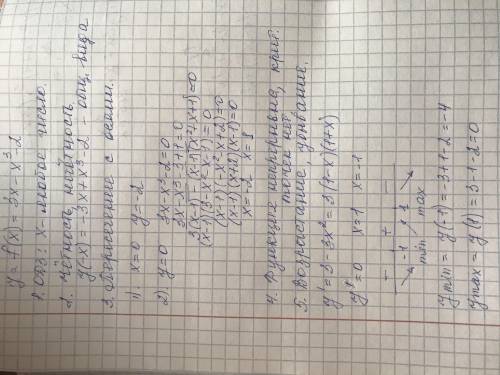 y = f(x) = 3x - x³ - 2
1. ОДЗ: x - любое число.
2. Чётность, нечётность
y(-x) = -3x + x³ - 2 - общ. вида
3. Пересечение с осями.
1). x=0 y=-2
2) y=0 3x - x³ - 2 = 0
3x - x³ - 3 + 1 = 0
3(x-1) - (x-1)(x²+x+1) = 0
(x-1)(3-x²-x-1) = 0
(x-1)(-x²-x+2) = 0
(x-1)(x+2)(x-1) = 0
x = -2 x = 1
4. Функция непрерывна, крит. точек нет.
5. Возрастание, убывание.
y' = 3 - 3x² = 3(1-x)(1+x)
y' = 0 x=1 x=-1
- + -
-1 1
min max
ymin = y(-1) = -3+1-2 = -4
ymax = y(1) = 3-1-2 = 0